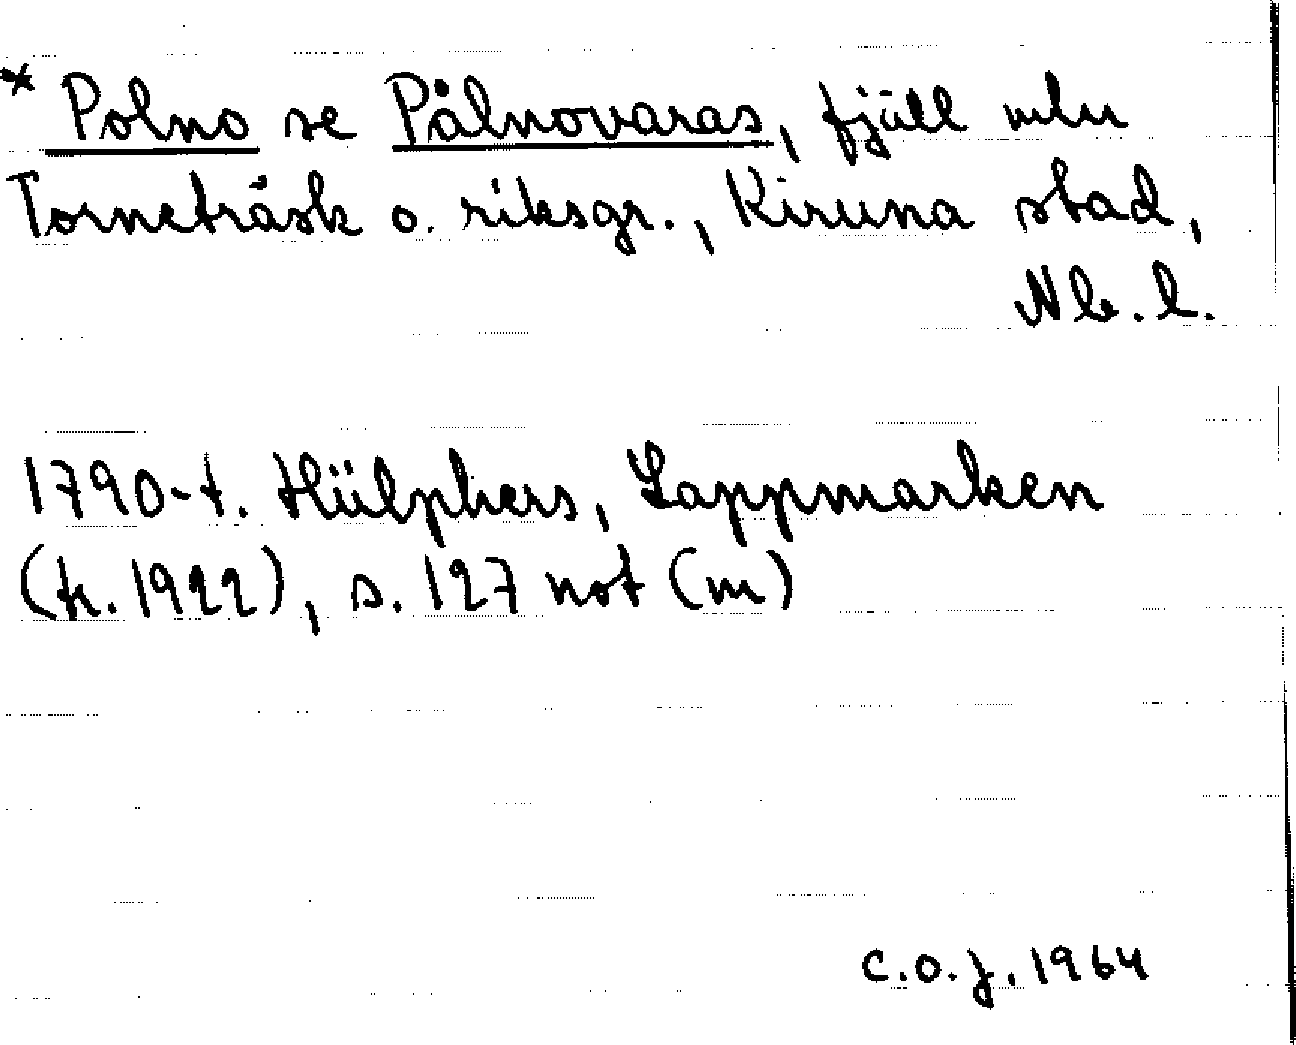 * Polno se Pålnovaras, fjäll mln
Torneträsk o. riksgr., Kiruna stad,
Nb. l.
1790-t. Hülphers, Lappmarken
(tr. 1922), s. 127 not (m)
C.O.J. 1964